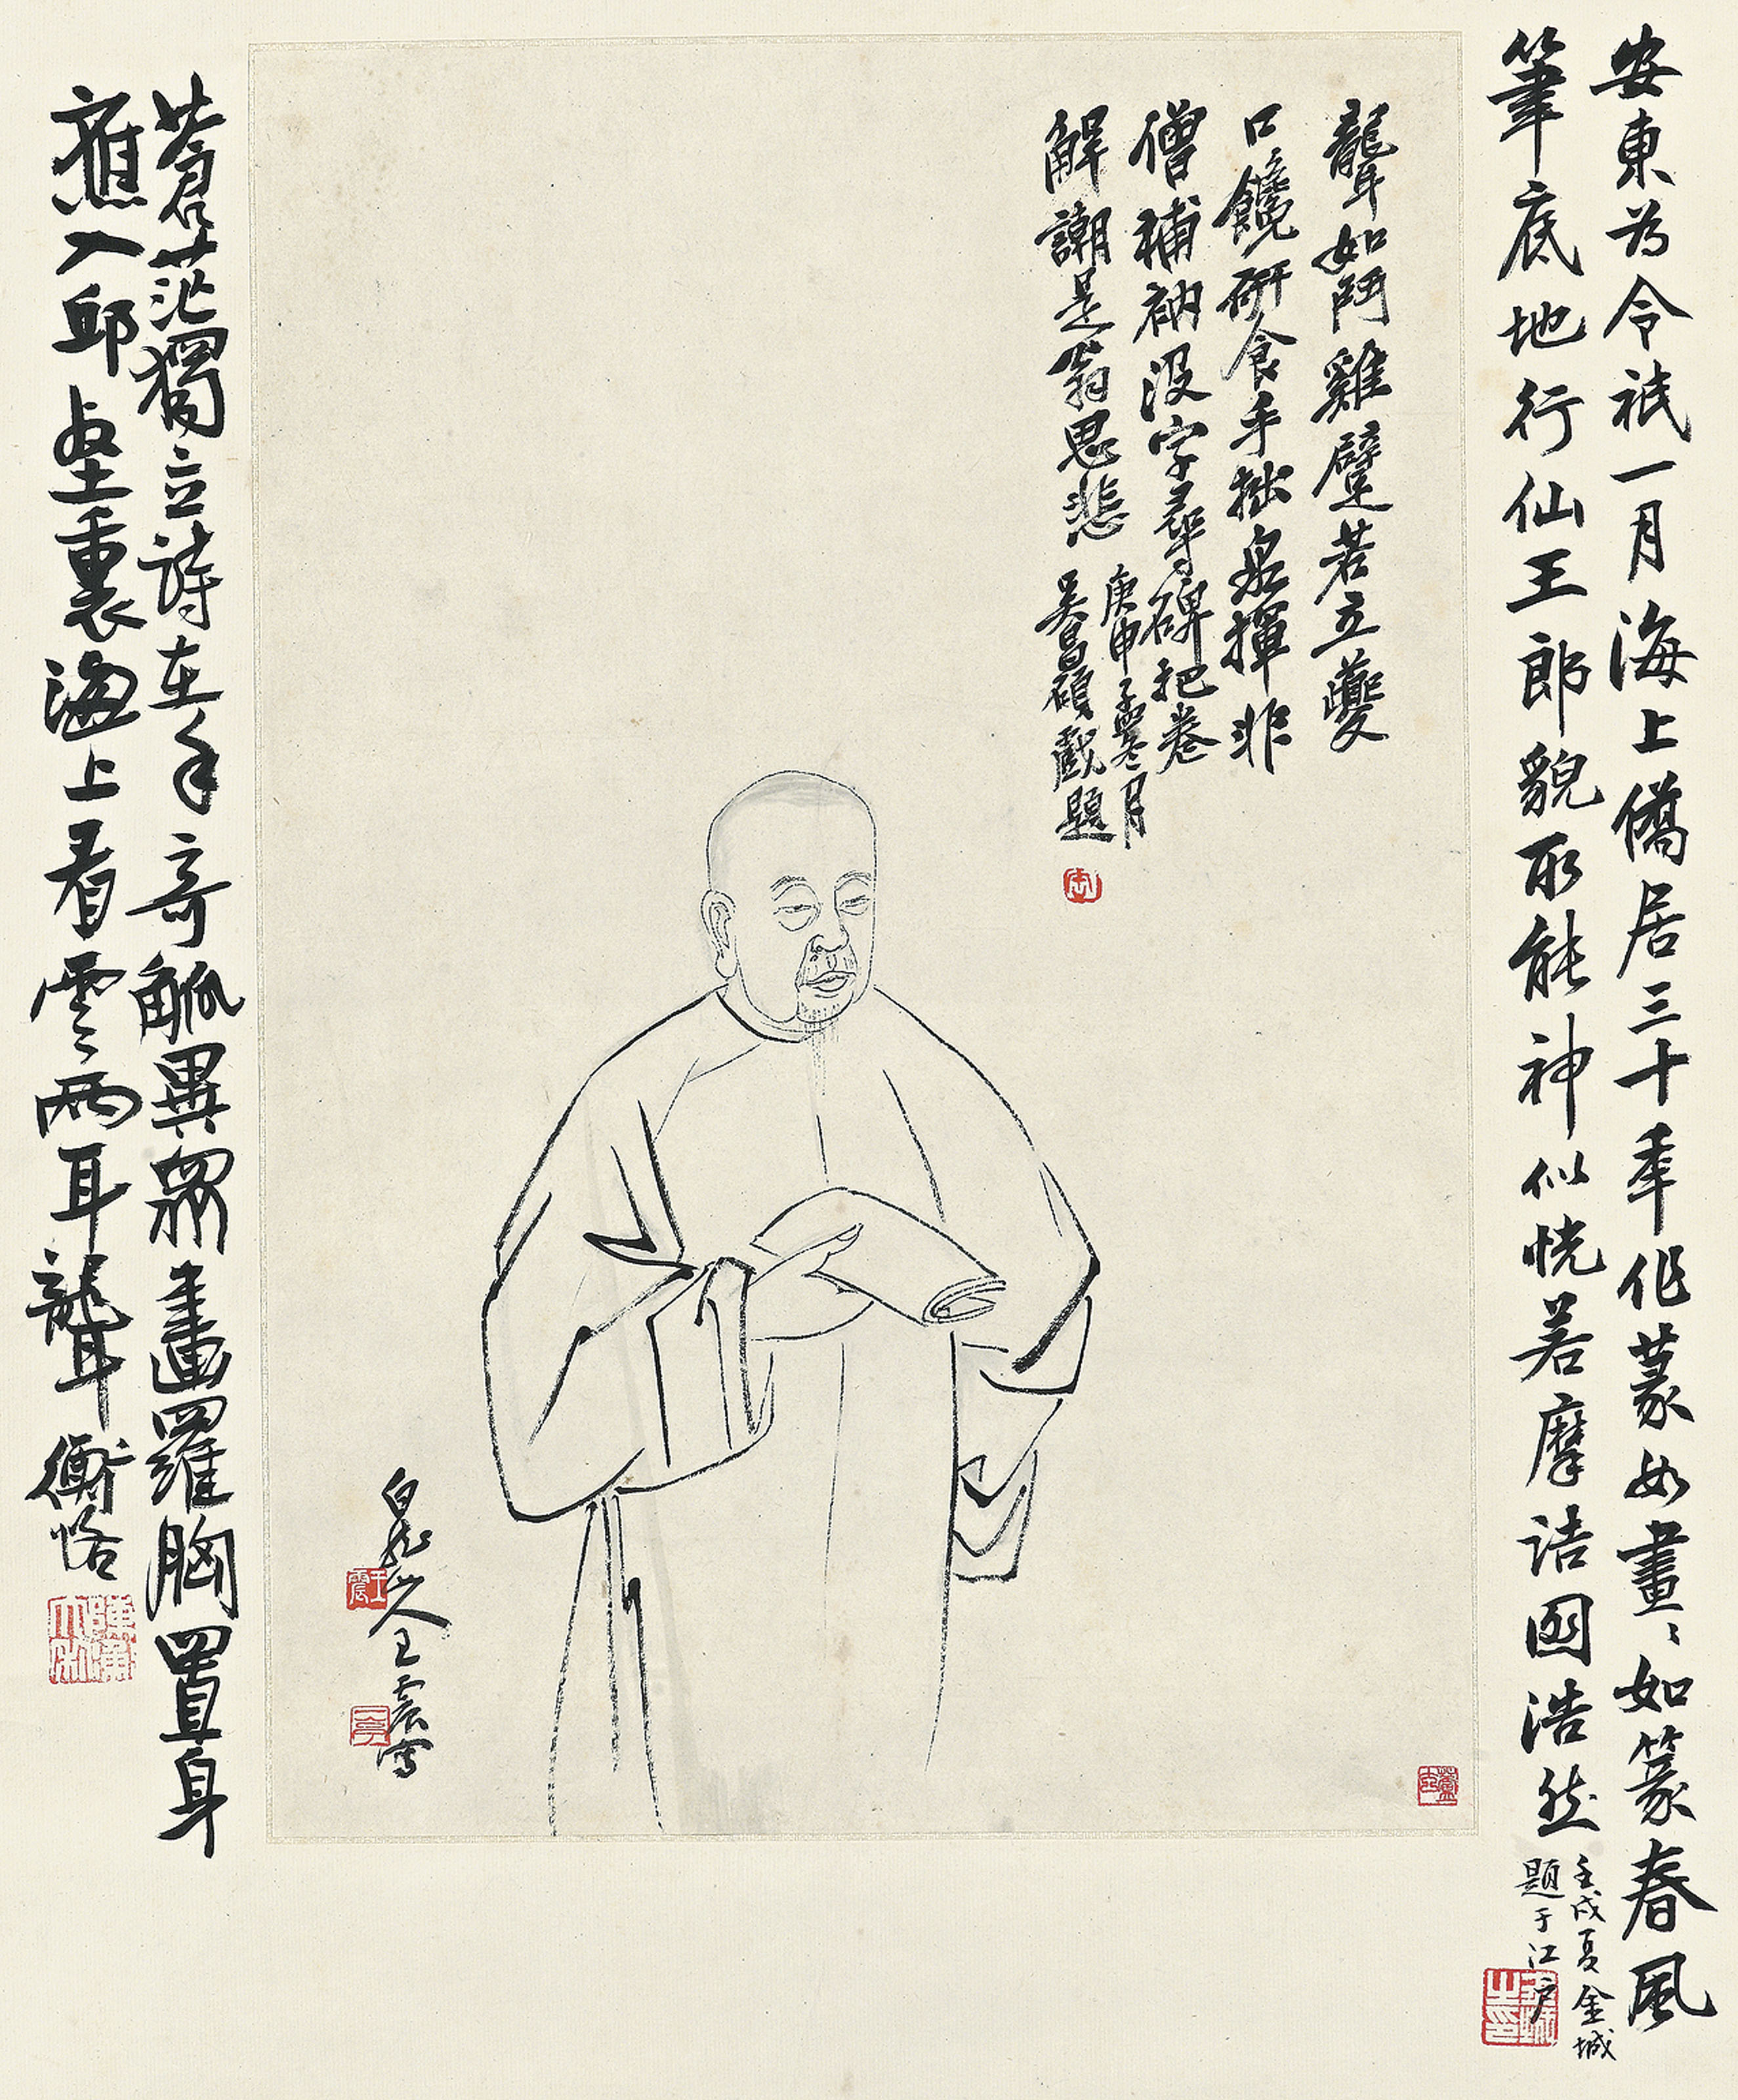 安東為令祇一月海上僑居三十年作篆如畫〻如篆春風
筆底地行仙王郎貌取能神似恍若摩詰圖浩然
壬戌夏金城
題于江戶
聾如鬥雞躄若立夔
口饞研食手拙泉揮非
僧補衲沒字尋碑把卷
解謿是翁思悲
庚申子寒月
吳昌碩戲題
白龍山人王震寫
王震
一亭
蒼茫獨立詩在手奇觚異眾畫羅胸置身
應入邱壑裏海上看雲兩耳聾衡恪